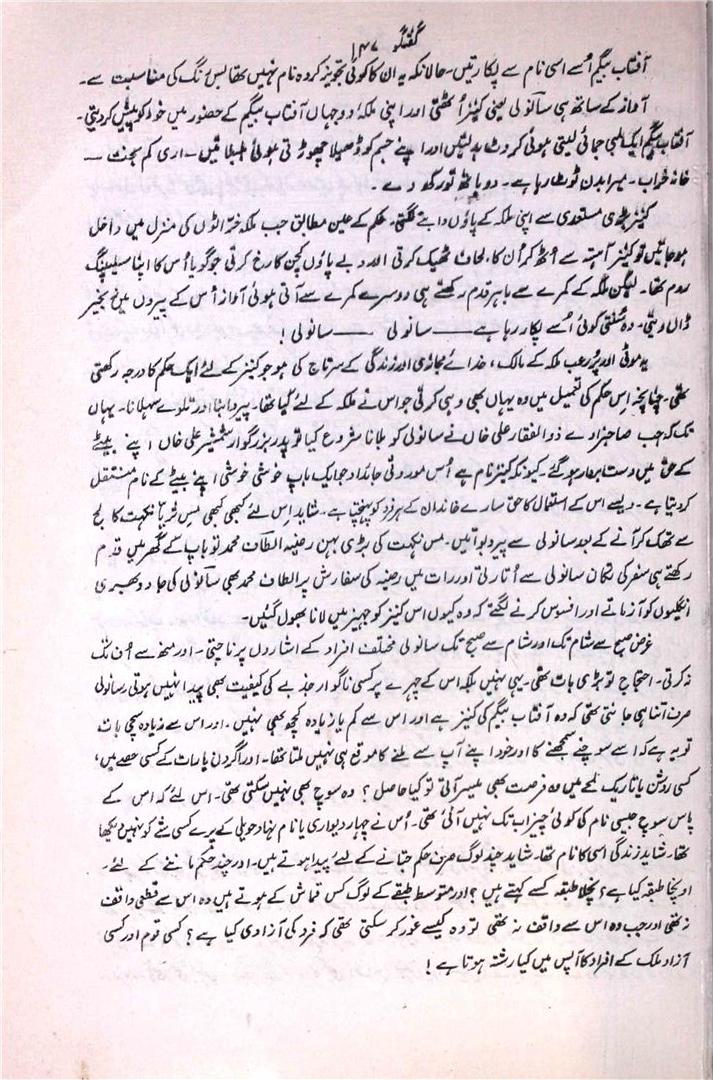 گفتگو ۱۴۷
آفتاب بیگم اُسے اسی نام سے پکارتیں۔ حالانکہ یہ ان کا کوئی تجویز کردہ نام نہیں تھا بس رنگ کی مناسبت سے۔
آواز کے ساتھ ہی سانولی یعنی کنیز اُٹھتی اور اپنی ملکۂ دوجہاں آفتاب بیگم کے حضور میں خود کو پیش کر دیتی۔
آفتاب بیگم ایک لمبی جمائی لیتی ہوئی کروٹ بدلتیں اور اپنے جسم کو ڈھیلا چھوڑتی ہوئی بلبلاتیں۔ اری کم بخت ــــ
خانہ خراب۔ میرا بدن ٹوٹا جا رہا ہے۔ دو ہاتھ تو رکھ دے۔
کنیز بڑی مستعدی سے اپنی ملکہ کے پاؤں دابنے لگتی۔ حکم کے عین مطابق جب ملکہ خرّاٹوں کی منزل میں داخل
ہو جاتیں تو کنیز آہستہ سے اُٹھ کر اُن کا لحاف ٹھیک کرتی اور دبے پاؤں کچن کا رخ کرتی جو گویا اُس کا اپنا سلیپنگ
روم تھا۔ لیکن ملکہ کے کمرے سے باہر قدم رکھتے ہی دوسرے کمرے سے آتی ہوئی آواز اُس کے پیروں میں زنجیر
ڈال دیتی۔ وہ سُنتی کوئی اُسے پکار رہا ہے ــــ سانولی ــــ سانولی !
یہ موٹی اور پُر رعب ملکہ کے مالک، خدائے مجازی اور زندگی کے سرتاج کی ہو جو کنیز کے لئے ایک حکم کا درجہ رکھتی
تھی۔ چنانچہ اس حکم کی تعمیل میں وہ یہاں بھی وہی کرتی جو اس نے ملکہ کے لئے کیا تھا۔ پیر دابنا اور تلوے سہلانا۔ یہاں
تک کہ جب صاحبزادے ذوالفقار علی خاں نے سانولی کو بلانا شروع کیا تو پدر بزرگوار شمشیر علی خاں اپنے بیٹے
کے حق میں دست بردار ہو گئے۔ کیونکہ کنیز نام ہے اُس موروثی جائداد جو ایک باپ خوشی خوشی اپنے بیٹے کے نام منتقل
کر دیتا ہے۔ ویسے اس کے استعمال کا حق سارے خاندان کے ہر فرد کو پہنچتا ہے۔ شاید اس لئے کبھی کبھی مس ثریا نکہت کالج
سے تھک کر آنے کے بعد سانولی سے پیر دبواتیں۔ مس نکہت کی بڑی بہن رضیہ الطاف محمد تو باپ کے گھر میں قدم
رکھتے ہی سفر کی تکان سانولی سے اُتارتی اور رات میں رضیہ کی سفارش پر الطاف محمد بھی سانولی کی جادو بھری
انگلیوں کو آزماتے اور افسوس کرنے لگتے کہ وہ کیوں اس کنیز کو جہیز میں لانا بھول گئیں۔
غرض صبح سے شام تک اور شام سے صبح تک سانولی مختلف افراد کے اشاروں پر ناچتی۔ اور منھ سے اُف تک
نہ کرتی۔ احتجاج تو بڑی بات تھی۔ یہی نہیں بلکہ اس کے چہرے پر کسی ناگوار جذبے کی کیفیت بھی پیدا نہیں ہوتی۔ سانولی
صرف اتنا ہی جانتی تھی کہ وہ آفتاب بیگم کی کنیز ہے اور اس سے کم یا زیادہ کچھ بھی نہیں۔ اور اس سے زیادہ سچی بات
تو یہ ہے کہ اسے سوچنے سمجھنے کا اور خود اپنے آپ سے ملنے کا موقع ہی نہیں ملتا تھا۔ اور اگر دن یا رات کے کسی حصے میں،
کسی روشن یا تاریک لمحے میں وہ فرصت بھی میسر آتی تو کیا حاصل ؟ وہ سوچ بھی نہیں سکتی تھی۔ اس لئے کہ اس کے
پاس سوچ جیسی نام کی کوئی چیز اب تک نہیں آئی تھی۔ اُس نے چہار دیواری یا نام نہاد حویلی کے پرے کسی شے کو نہیں دیکھا
تھا، شاید زندگی اسی کا نام تھا۔ شاید چند لوگ صرف حکم جتانے کے لئے پیدا ہوتے ہیں۔ اور چند حکم ماننے کے لئے۔
اونچا طبقہ کیا ہے ؟ نچلا طبقہ کسے کہتے ہیں ؟ اور متوسط طبقے کے لوگ کس قماش کے ہوتے ہیں وہ اس سے قطعی واقف
نہ تھی اور جب وہ اس سے واقف نہ تھی تو وہ کیسے غور کر سکتی تھی کہ فرد کی آزادی کیا ہے ؟ کسی قوم اور کسی
آزاد ملک کے افراد کا آپس میں کیا رشتہ ہوتا ہے !